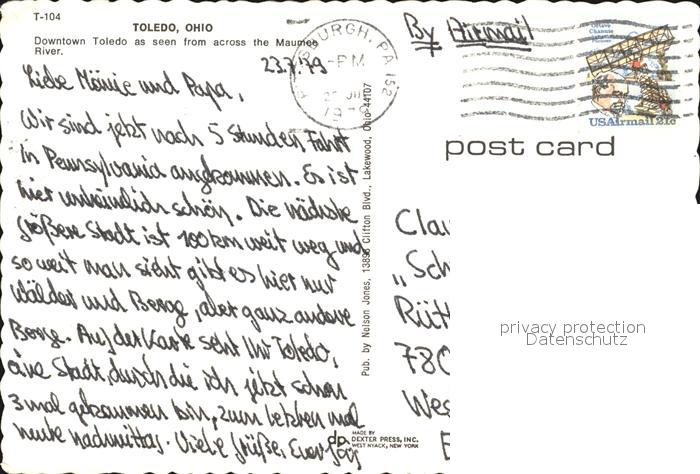 T-104
TOLEDO, OHIO
Downtown Toledo as seen from across the Maumee
River.
By Airmail
23.7.79
PM
152
Octave
Chanute
USAirmail 21c
post card
Liebe Mömie und Papa,
Wir sind jetzt nach 5 Stunden Fahrt
in Pennsylvania angekommen. Es ist
hier unheimlich schön. Die nächste
größere Stadt ist 100 km weit weg und
so weit man sieht gibt es hier nur
Wälder und Berge, aber ganz andere
Berge. Auf der Karte seht Ihr Toledo,
eine Stadt, durch die ich jetzt schon
3 mal gekommen bin, zum letzten mal
heute nachmittag. Viele Grüße, Euer Jörg
Pub. by Nelson Jones, Clifton Blvd., Lakewood, Ohio 44107
MADE BY
dp DEXTER PRESS, INC.
WEST NYACK, NEW YORK
Cla
„Sch
Rütt
780
Wes
privacy protection
Datenschutz